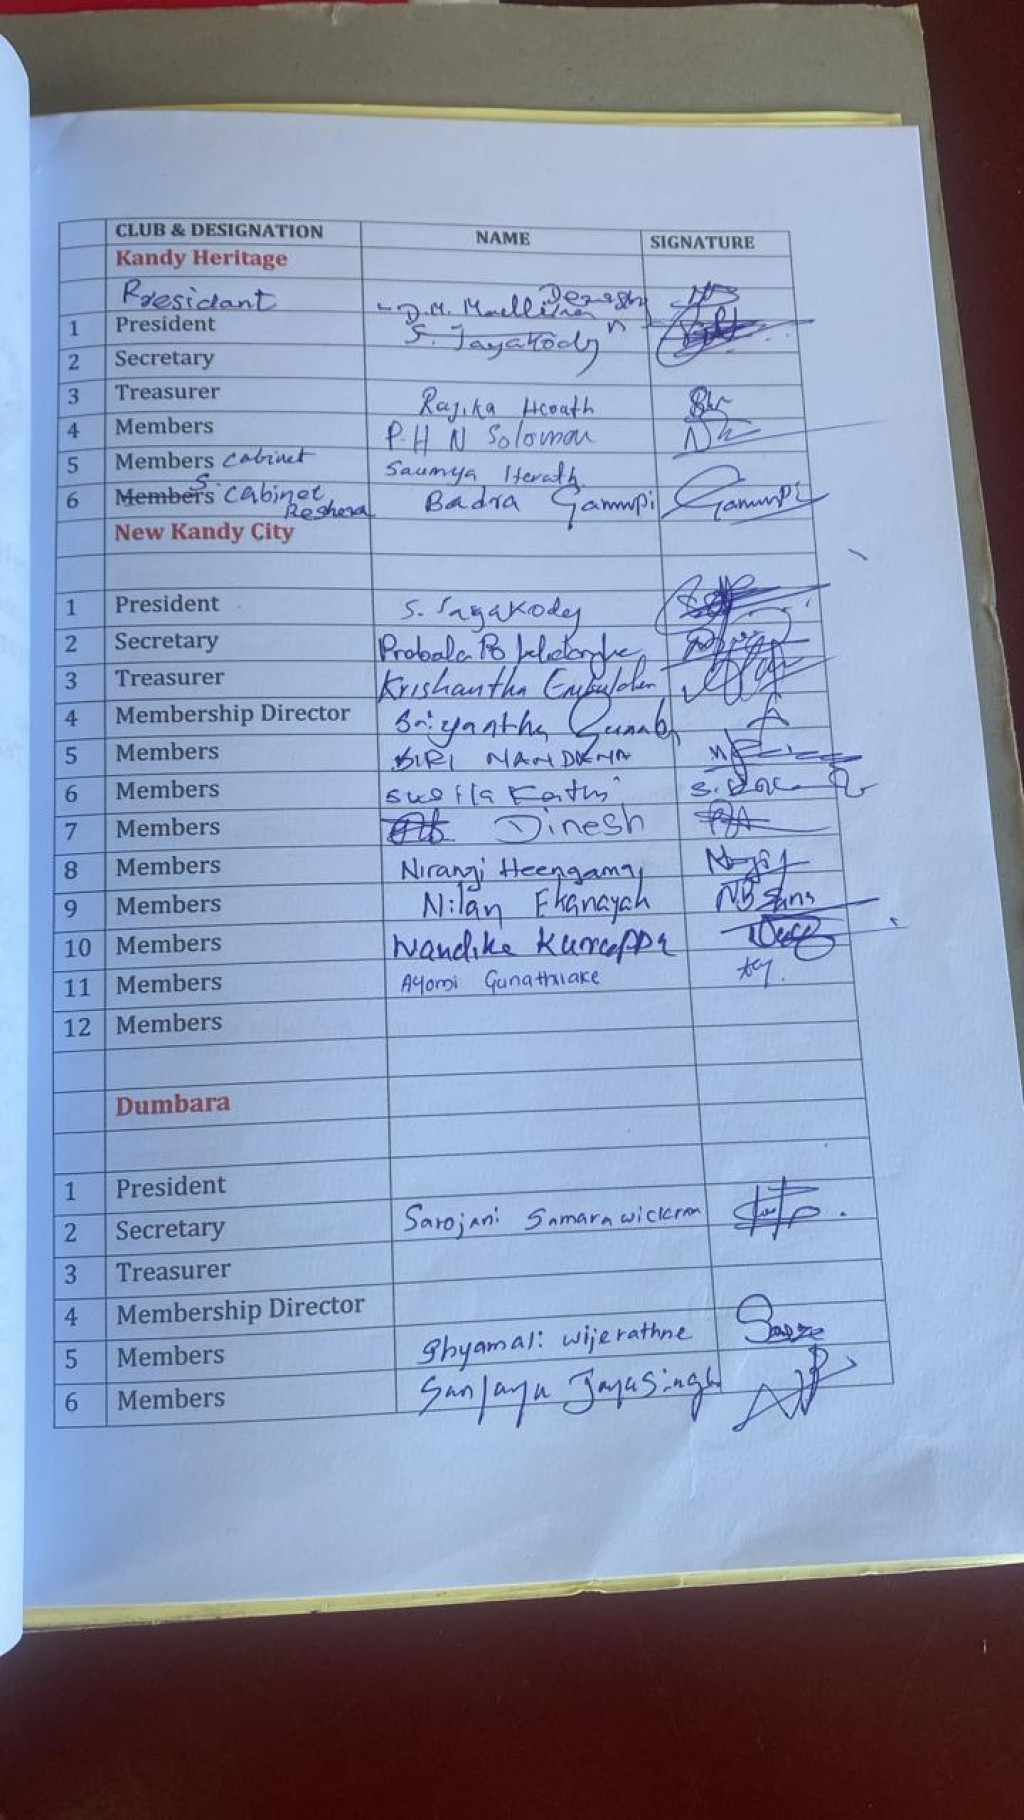 CLUB & DESIGNATION NAME SIGNATURE
Kandy Heritage
Presidant D.M.
1 President S. Jayakody
2 Secretary
3 Treasurer Rajika Herath
4 Members P.H N Solomon
5 Members Cabinet Saumya Herath
6 Members Cabinet Badra Gamuupi Gamuupi
New Kandy City
1 President S. Jayakody
2 Secretary
3 Treasurer Krishantha
4 Membership Director Sriyantha
5 Members SIRI NANDANA
6 Members
7 Members Dinesh
8 Members Niranji Heengama
9 Members Nilan Ekanayah
10 Members
11 Members Ayomi Gunathilake
12 Members
Dumbara
1 President
2 Secretary Sarojani Samarawickrm
3 Treasurer
4 Membership Director
5 Members Shyamali wijerathne
6 Members Sanjaya Jayasingh